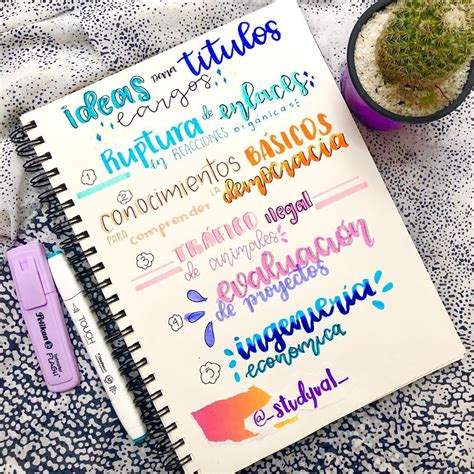 ideas para títulos
largos
1 Ruptura de enlaces
en REACCIONES orgánicas
2 CONOCIMIENTOS BÁSICOS
PARA comprender LA democracia
3 TRÁFICO ilegal
de animales
4 evaluación
de proyectos
5 ingeniería
económica
@_studyval_
Pelikan
FLASH
TOUCH